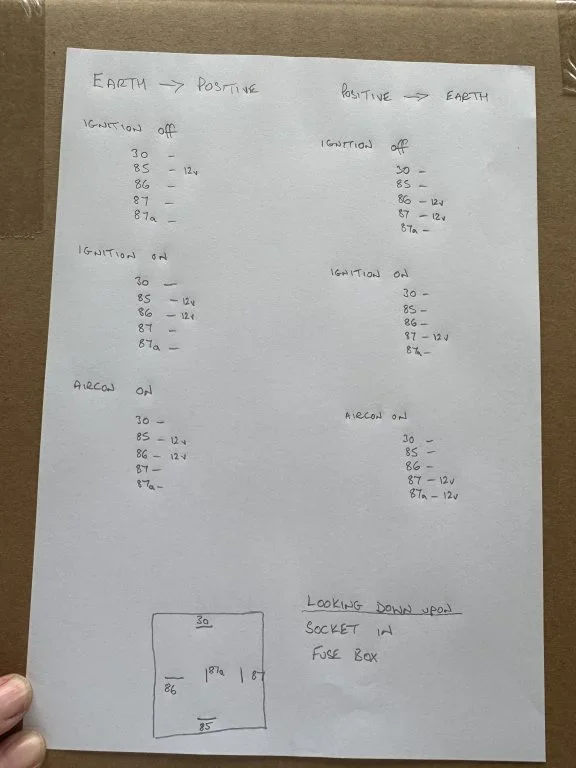 EARTH → POSITIVE
IGNITION off
30 –
85 – 12v
86 –
87 –
87a –
IGNITION ON
30 –
85 – 12v
86 – 12v
87 –
87a –
AIRCON ON
30 –
85 – 12v
86 – 12v
87 –
87a –
POSITIVE → EARTH
IGNITION off
30 –
85 –
86 – 12v
87 – 12v
87a –
IGNITION ON
30 –
85 –
86 –
87 – 12v
87a –
AIRCON ON
30 –
85 –
86 –
87 – 12v
87a – 12v
30
86
87a
87
85
LOOKING DOWN UPON
SOCKET IN
FUSE BOX